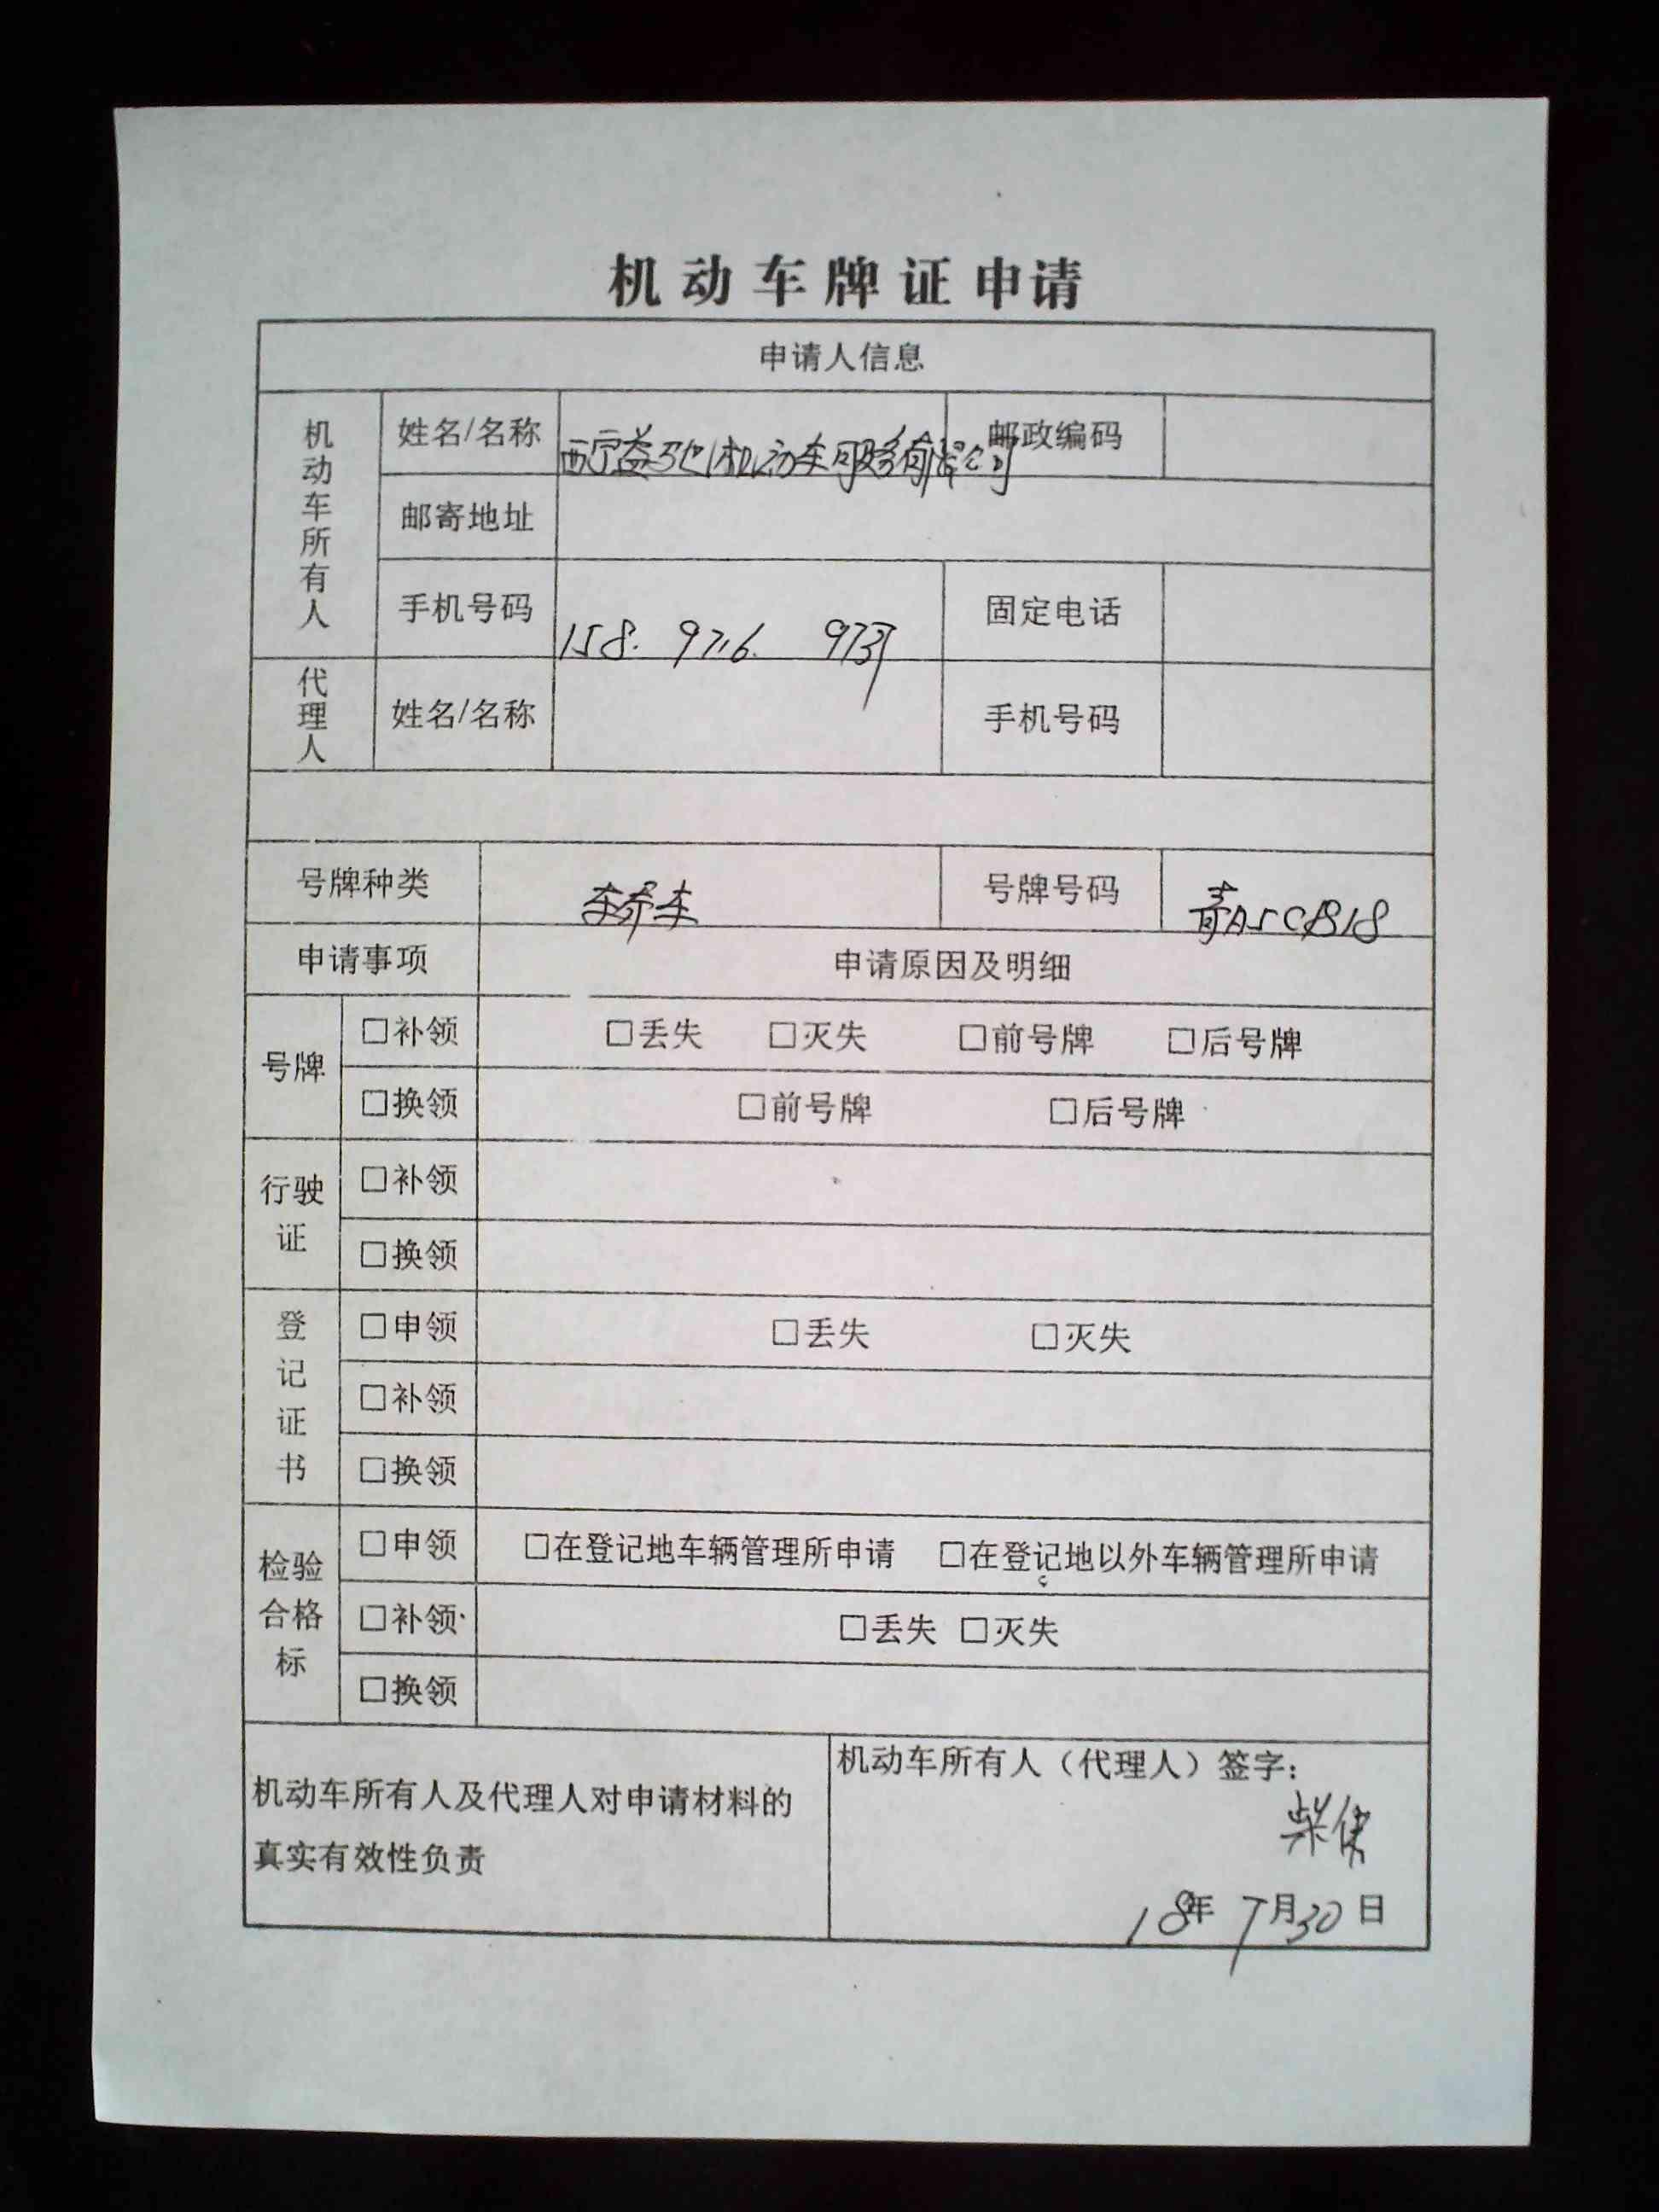 机动车牌证申请
申请人信息
机动车所有人 姓名/名称 西宁益 机动车服务有限公司 邮政编码
邮寄地址
手机号码 158. 9716. 固定电话
代理人 姓名/名称 手机号码
号牌种类 号牌号码 青A5CB18
申请事项 申请原因及明细
号牌 □补领 □丢失 □灭失 □前号牌 □后号牌
□换领 □前号牌 □后号牌
行驶证 □补领
□换领
登记证书 □申领 □丢失 □灭失
□补领
□换领
检验合格标 □申领 □在登记地车辆管理所申请 □在登记地以外车辆管理所申请
□补领 □丢失 □灭失
□换领
机动车所有人及代理人对申请材料的
真实有效性负责
机动车所有人（代理人）签字：
柴
18年 7月30日